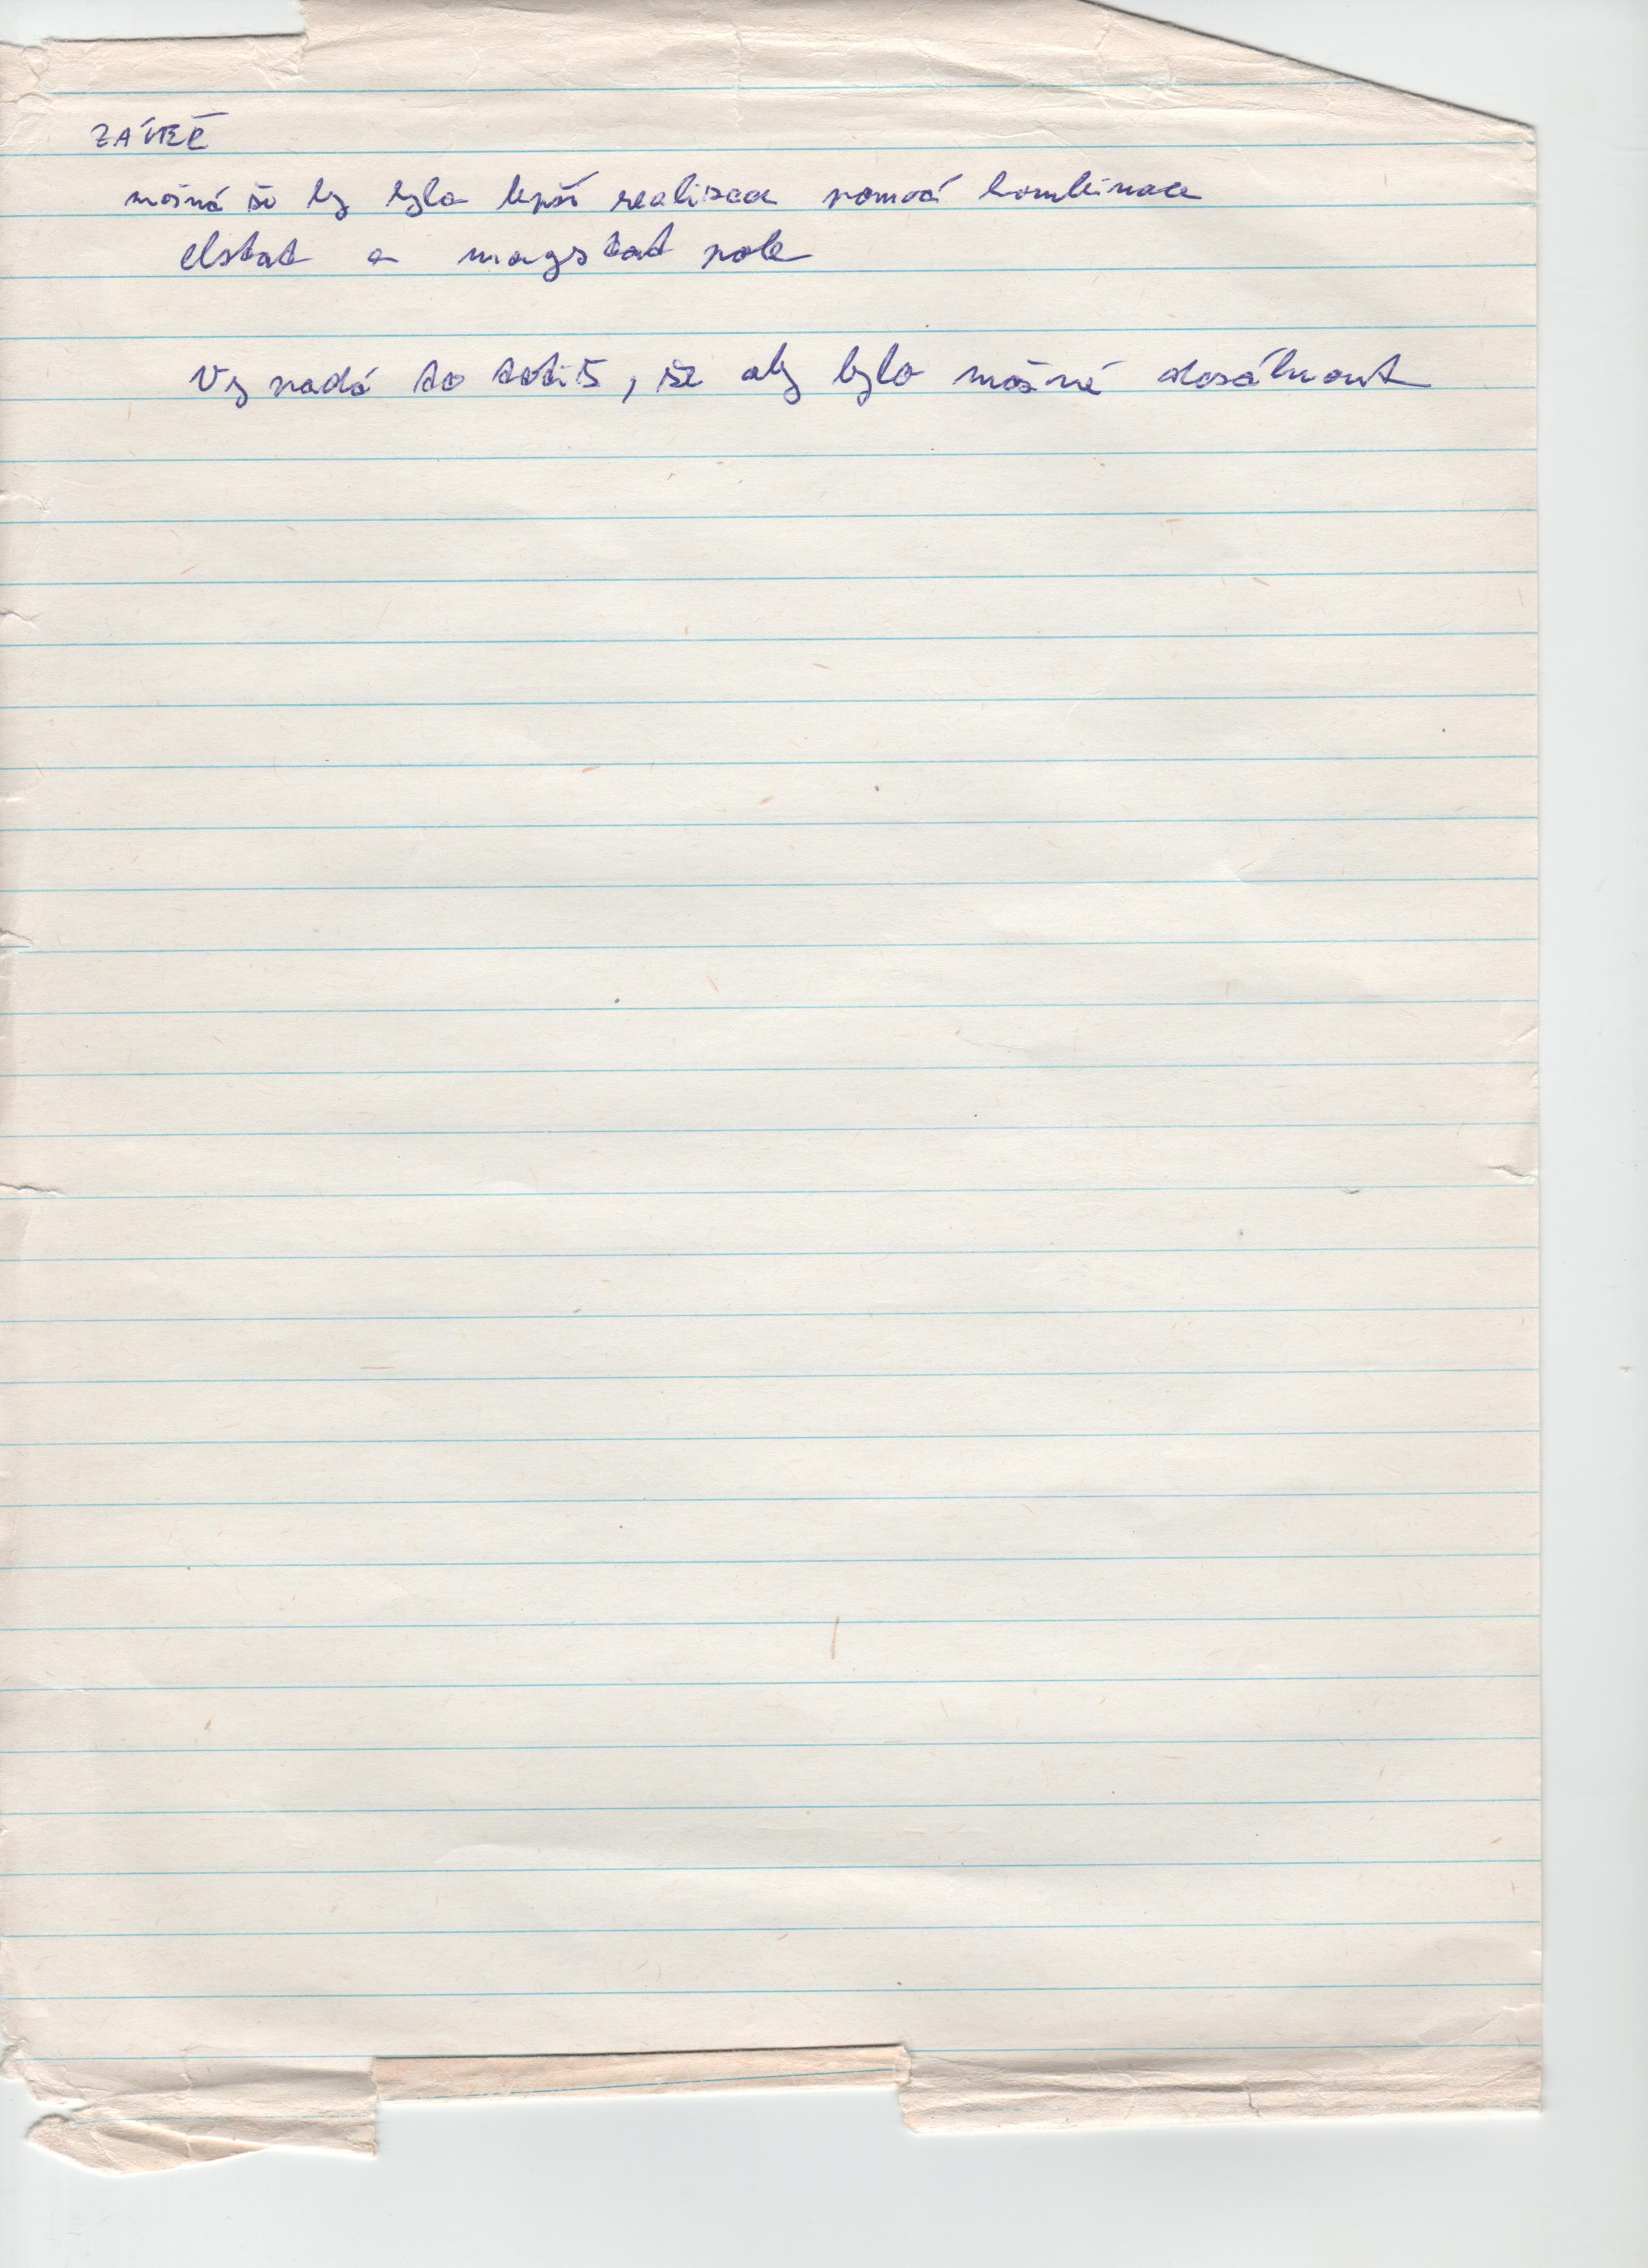 ZÁVĚR
možná že by byla lepší realizace pomocí kombinace
elstat a magstat pole
Vypadá to totiž, že aby bylo možné dosáhnout